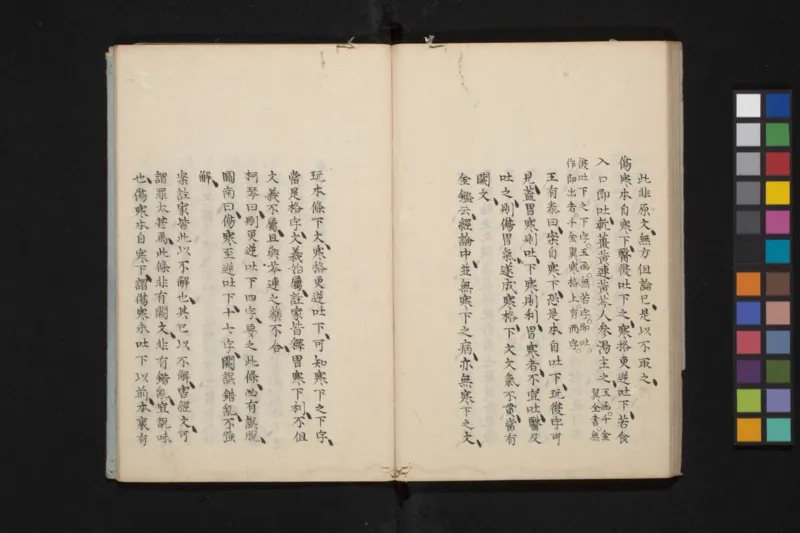 此非原文無方但論已是以不取之
傷寒本自寒下醫復吐下之寒格更逆吐下若食
入口即吐乾薑黃連黃芩人參湯主之玉函千金翼全書無
復吐下之下字玉函無若字即吐作即出者千金翼寒格上有而字
王有泰曰案自寒下恐是本自吐下玩復字可
見蓋胃寒則吐下寒則利胃寒者不宜吐醫反
吐之則傷胃氣遂成寒格下文文氣不貫當有
闕文
金鑑云經論中並無寒下之病亦無寒下之文
玩本條下文寒格更逆吐下可知寒下之下字
當是格字文義始屬註家皆釋胃寒下利不但
文義不屬且與芩連之藥不合
柯琴曰則更逆吐下四字要之此條必有誤脫
圖南曰傷寒至逆吐下十七字闕誤錯亂不強
解
案註家皆此以不解也其已以不解害經文可
謂罪大甚焉此條非有闕文非有錯亂宜說味
也傷寒本自寒下謂傷寒未吐下以前本裏有